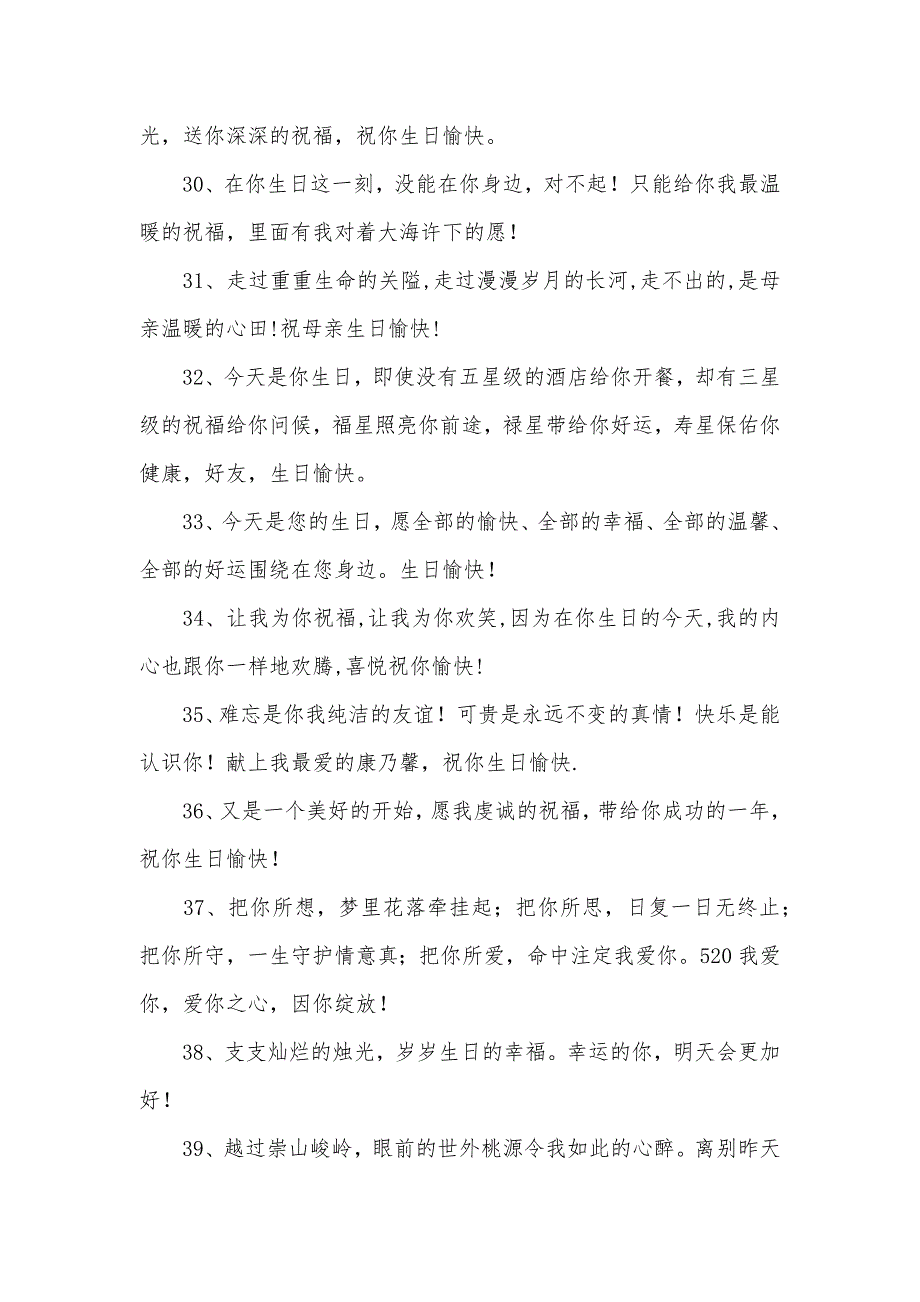 光，送你深深的祝福，祝你生日愉快。
30、在你生日这一刻，没能在你身边，对不起！只能给你我最温
暖的祝福，里面有我对着大海许下的愿！
31、走过重重生命的关隘,走过漫漫岁月的长河,走不出的,是母
亲温暖的心田!祝母亲生日愉快!
32、今天是你生日，即使没有五星级的酒店给你开餐，却有三星
级的祝福给你问候，福星照亮你前途，禄星带给你好运，寿星保佑你
健康，好友，生日愉快。
33、今天是您的生日，愿全部的愉快、全部的幸福、全部的温馨、
全部的好运围绕在您身边。生日愉快！
34、让我为你祝福,让我为你欢笑,因为在你生日的今天,我的内
心也跟你一样地欢腾,喜悦祝你愉快!
35、难忘是你我纯洁的友谊！可贵是永远不变的真情！快乐是能
认识你！献上我最爱的康乃馨，祝你生日愉快.
36、又是一个美好的开始，愿我虔诚的祝福，带给你成功的一年，
祝你生日愉快！
37、把你所想，梦里花落牵挂起；把你所思，日复一日无终止；
把你所守，一生守护情意真；把你所爱，命中注定我爱你。520 我爱
你，爱你之心，因你绽放！
38、支支灿烂的烛光，岁岁生日的幸福。幸运的你，明天会更加
好！
39、越过崇山峻岭，眼前的世外桃源令我如此的心醉。离别昨天